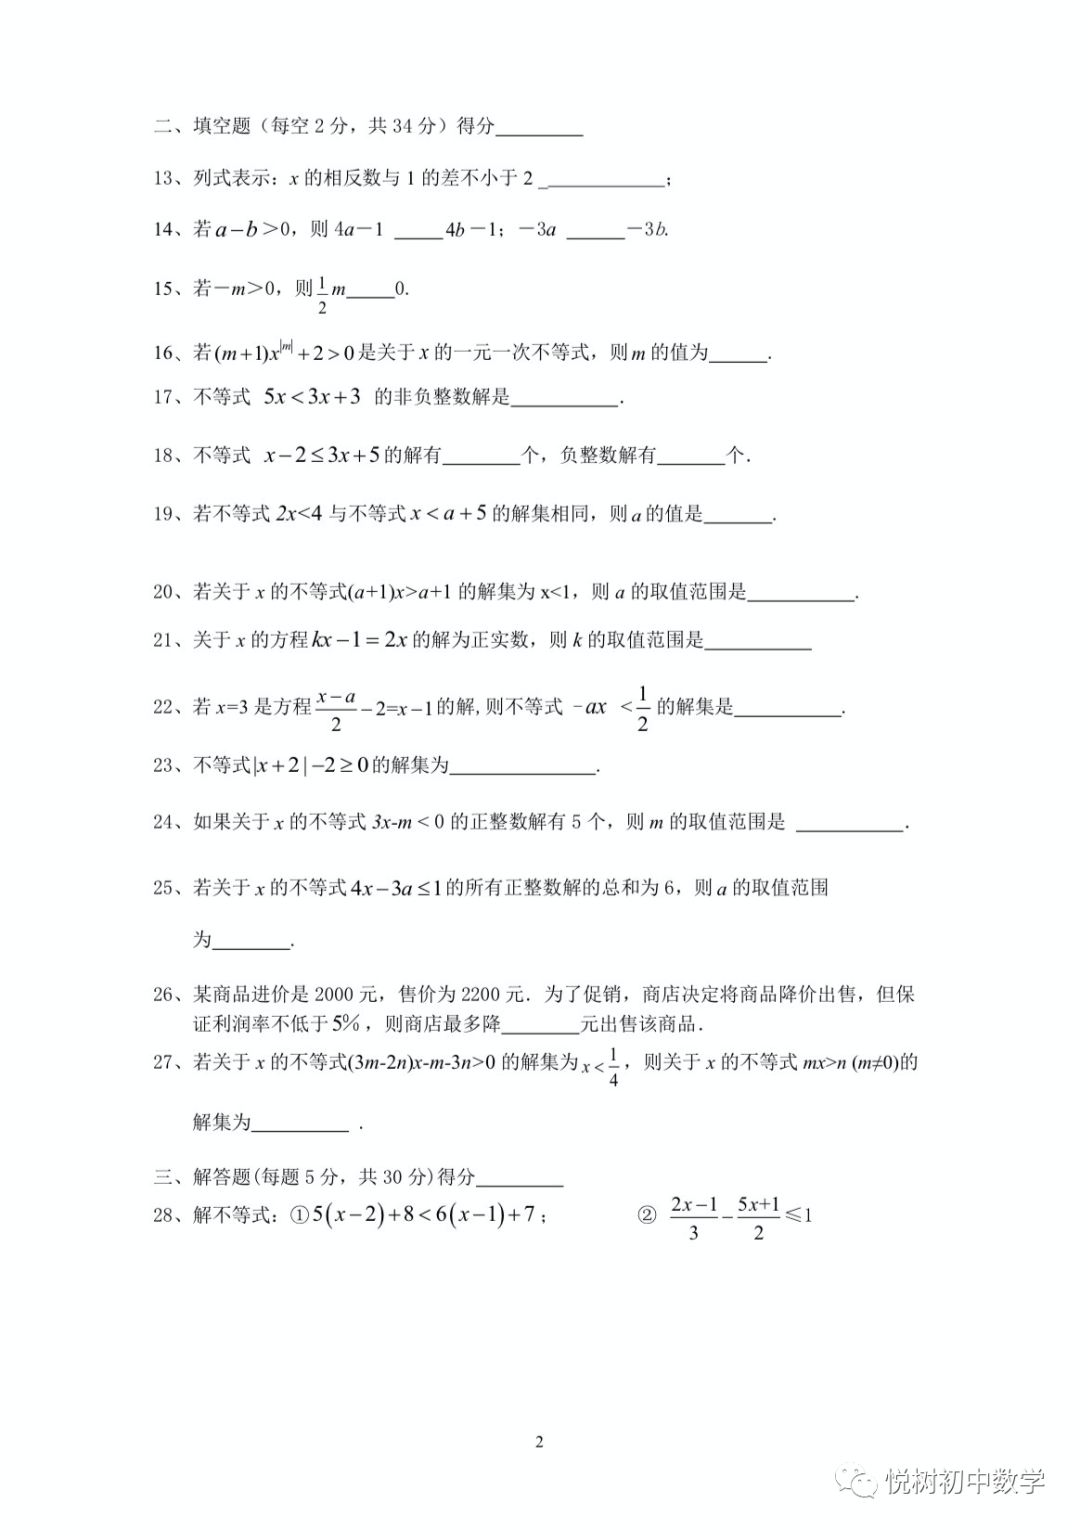 二、填空题（每空 2 分，共 34 分）得分_________
13、列式表示：x 的相反数与 1 的差不小于 2 _____________；
14、若 a－b＞0，则 4a－1 _____4b－1；－3a ______－3b.
15、若－m＞0，则 1/2 m_____0.
16、若(m+1)x^|m|+2>0是关于 x 的一元一次不等式，则 m 的值为______.
17、不等式 5x<3x+3 的非负整数解是___________.
18、不等式 x－2≤3x+5的解有________个，负整数解有_______个.
19、若不等式 2x<4 与不等式 x<a+5 的解集相同，则 a 的值是_______.
20、若关于 x 的不等式(a+1)x>a+1 的解集为 x<1，则 a 的取值范围是___________.
21、关于 x 的方程 kx－1=2x 的解为正实数，则 k 的取值范围是___________
22、若 x=3 是方程 (x－a)/2－2=x－1的解,则不等式 -ax < 1/2 的解集是___________.
23、不等式|x+2|－2≥0的解集为_______________.
24、如果关于 x 的不等式 3x-m < 0 的正整数解有 5 个，则 m 的取值范围是 ___________.
25、若关于 x 的不等式 4x－3a≤1的所有正整数解的总和为 6，则 a 的取值范围
为________.
26、某商品进价是 2000 元，售价为 2200 元．为了促销，商店决定将商品降价出售，但保
证利润率不低于5%，则商店最多降________元出售该商品.
27、若关于 x 的不等式(3m-2n)x-m-3n>0 的解集为 x<1/4，则关于 x 的不等式 mx>n (m≠0)的
解集为__________ .
三、解答题(每题 5 分，共 30 分)得分_________
28、解不等式：①5(x－2)+8<6(x－1)+7； ② (2x－1)/3－(5x+1)/2≤1
2
悦树初中数学